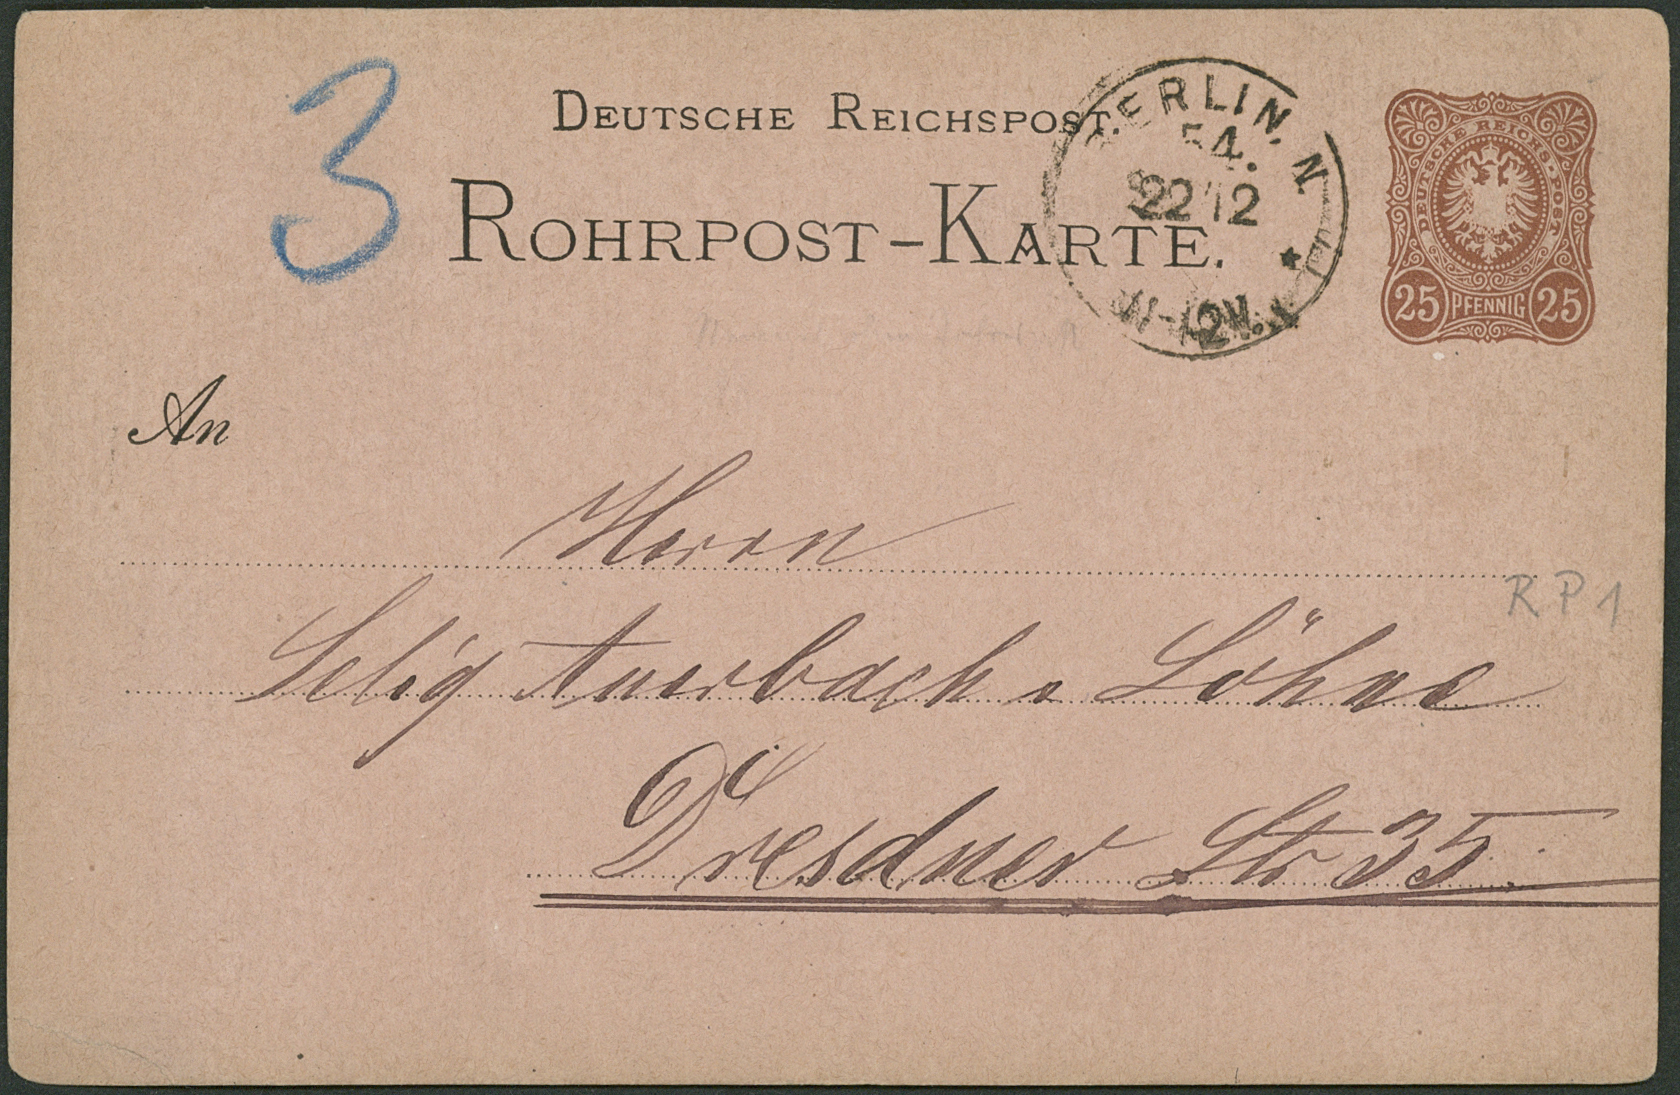 3
DEUTSCHE REICHSPOST.
ROHRPOST-KARTE.
BERLIN. N
54.
22 12
DEUTSCHE REICHS-POST
25 PFENNIG 25
An
Herrn
Selig Auerbach u Söhne
RP1
Dresdner Str 35